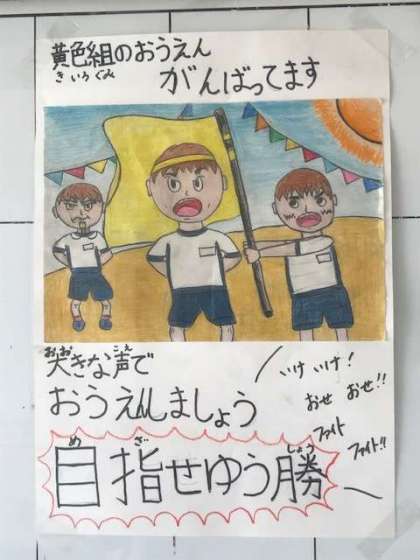 黄色組のおうえん
きいろぐみ
がんばってます
おお こえ
大きな声で
おうえんしましょう
いけ いけ!
おせ おせ!!
ファイト
ファイト!!
め ざ しょう
目指せゆう勝